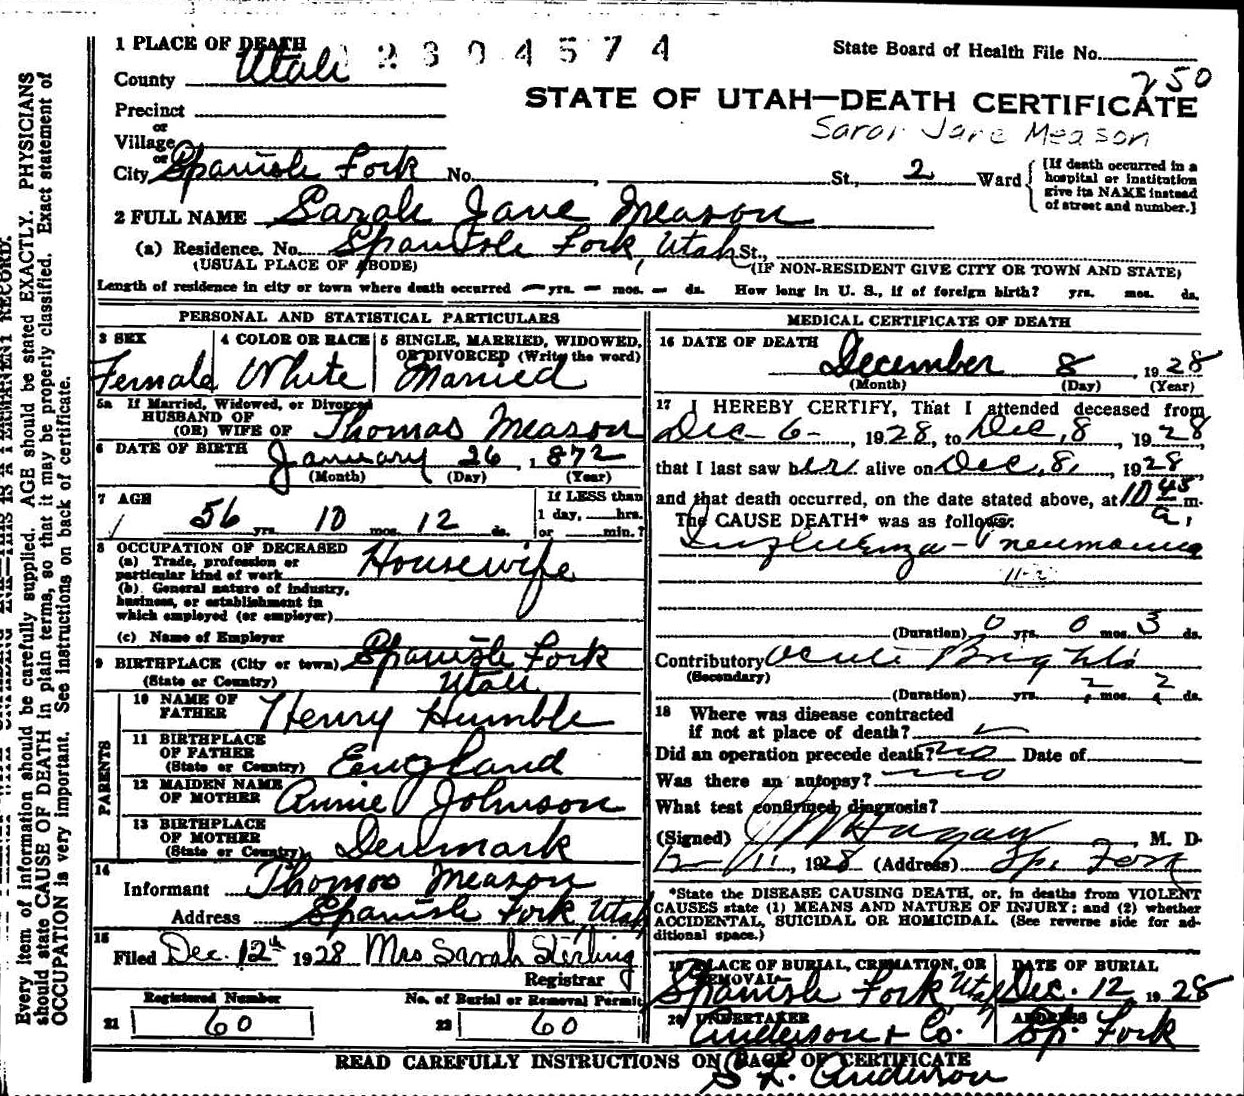 1 PLACE OF DEATH 2304574 State Board of Health File No.
County Utah 250
STATE OF UTAH—DEATH CERTIFICATE
Precinct
or
Village
Jane Meason
or
City Spanish Fork No. , St., 2 Ward
[If death occurred in a
hospital or institution
give its NAME instead
of street and number.]
2 FULL NAME Sarah Jane Meason
(a) Residence. No. Spanish Fork, Utah St.,
(USUAL PLACE OF ABODE) (IF NON-RESIDENT GIVE CITY OR TOWN AND STATE)
Length of residence in city or town where death occurred — yrs. — mos. — ds. How long in U. S., if of foreign birth? yrs. mos. ds.
PERSONAL AND STATISTICAL PARTICULARS
3 SEX 4 COLOR OR RACE 5 SINGLE, MARRIED, WIDOWED,
OR DIVORCED (Write the word)
Female White Married
5a If Married, Widowed, or Divorced
HUSBAND OF
(OR) WIFE OF Thomas Meason
6 DATE OF BIRTH January 26, 1872
(Month) (Day) (Year)
7 AGE If LESS than
1 day, hrs.
56 yrs. 10 mos. 12 ds. or min.?
8 OCCUPATION OF DECEASED
(a) Trade, profession or
particular kind of work Housewife
(b). General nature of industry,
business, or establishment in
which employed (or employer)
(c) Name of Employer
9 BIRTHPLACE (City or town) Spanish Fork
(State or Country) Utah
PARENTS
10 NAME OF
FATHER Henry Humble
11 BIRTHPLACE
OF FATHER
(State or Country) England
12 MAIDEN NAME
OF MOTHER Annie Johnson
13 BIRTHPLACE
OF MOTHER
(State or Country) Denmark
14
Informant Thomas Meason
Address Spanish Fork, Utah
15
Filed Dec. 12th 1928 Mrs Sarah Sterling
Registrar
Registered Number No. of Burial or Removal Permit
21 60 22 60
MEDICAL CERTIFICATE OF DEATH
16 DATE OF DEATH
December 8, 1928
(Month) (Day) (Year)
17 I HEREBY CERTIFY, That I attended deceased from
Dec- 6-, 1928, to Dec, 8, 1928
that I last saw her alive on Dec, 8, 1928
and that death occurred, on the date stated above, at 10 45 a, m.
The CAUSE DEATH* was as follows:
Influenza - Pneumonia
11-2
(Duration) 0 yrs. 0 mos. 3 ds.
Contributory Acute Brights
(Secondary)
(Duration) yrs. mos. 2 ds.
18 Where was disease contracted
if not at place of death?
Did an operation precede death? no Date of
Was there an autopsy? no
What test confirmed diagnosis?
(Signed) Hagan, M. D.
12-/11, 1928 (Address) Sp. Fork
*State the DISEASE CAUSING DEATH, or, in deaths from VIOLENT
CAUSES state (1) MEANS AND NATURE OF INJURY; and (2) whether
ACCIDENTAL, SUICIDAL OR HOMICIDAL. (See reverse side for ad-
ditional space.)
19 PLACE OF BURIAL, CREMATION, OR REMOVAL DATE OF BURIAL
Spanish Fork Utah Dec. 12, 1928
20 UNDERTAKER ADDRESS
Anderson & Co. Sp. Fork
READ CAREFULLY INSTRUCTIONS ON BACK OF CERTIFICATE
S L. Anderson
Every item of information should be carefully supplied. AGE should be stated EXACTLY. PHYSICIANS
should state CAUSE OF DEATH in plain terms, so that it may be properly classified. Exact statement of
OCCUPATION is very important. See instructions on back of certificate.